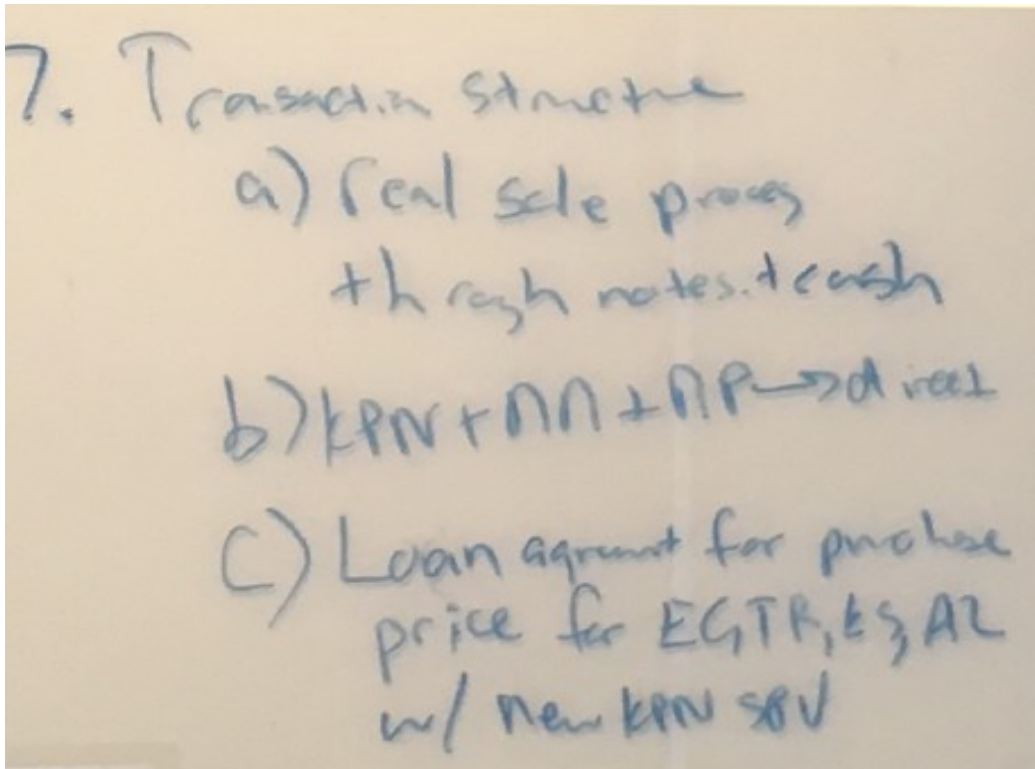 7. Transaction structure
a) real sale process
through notes + cash
b) KPN + NN + NP → direct
c) Loan agreement for purchase
price for EGTR, ES, AZ
w/ new KPN SPV